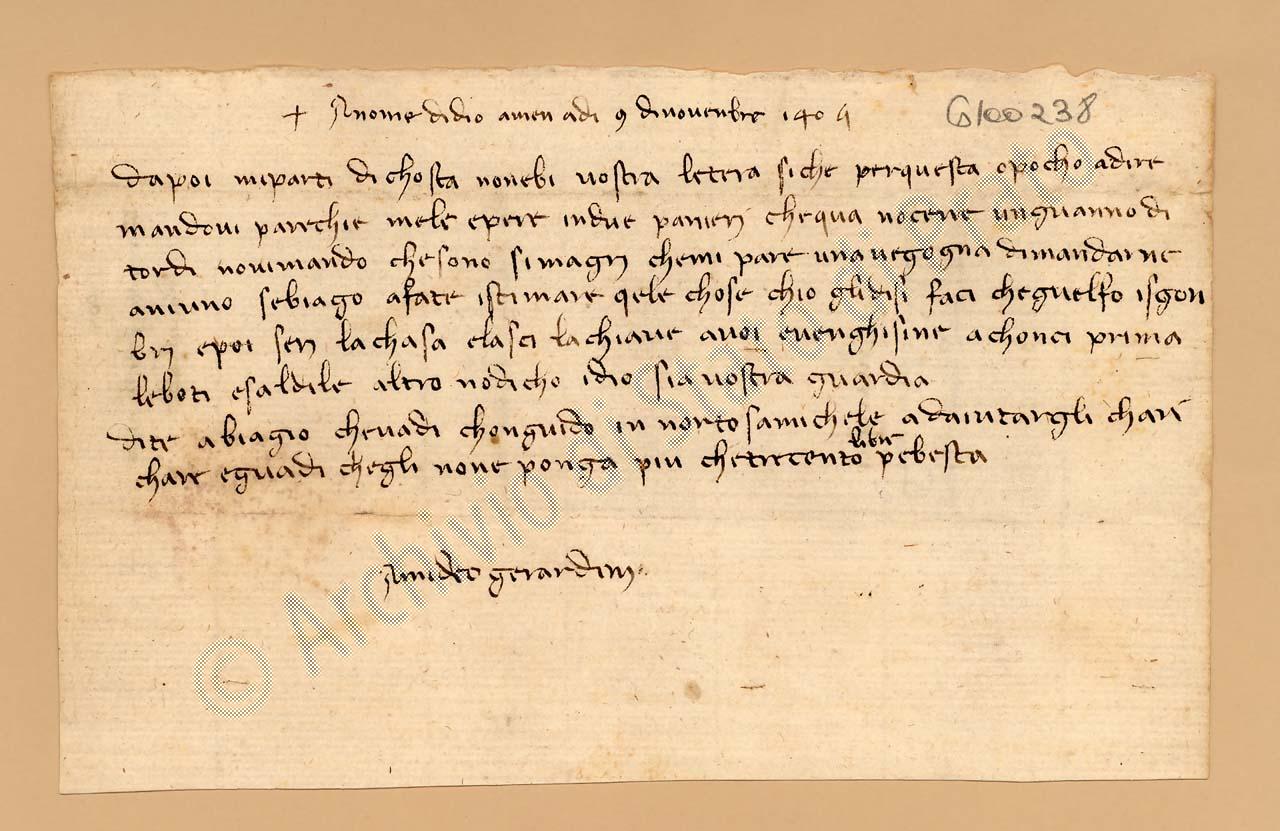 + Al nome di dio amen adi 9 di novenbre 1404
6100238
dapoi miparti di chosta nonebi vostra letera siche perquesta opocho adire
mandovi parechie mele epere indue panieri chequa nocene unguanno di
tordi novimando chesono simagri chemi pare una vegogna dimandarne
aniuno sebiago afate istimare qele chose chio glidisi faci cheguelfo isgon
bri epoi seri lachasa elasci lachiave avoi evenghisine achonci prima
leboti esaldile altro nodicho idio sia vostra guardia
dite abiagio chevadi chonguido in norto samichele adaiutargli chari
chare eguadi chegli none ponga piu chetrecento libre pebesta
Amideo gerardini
© Archivio di Stato di Prato